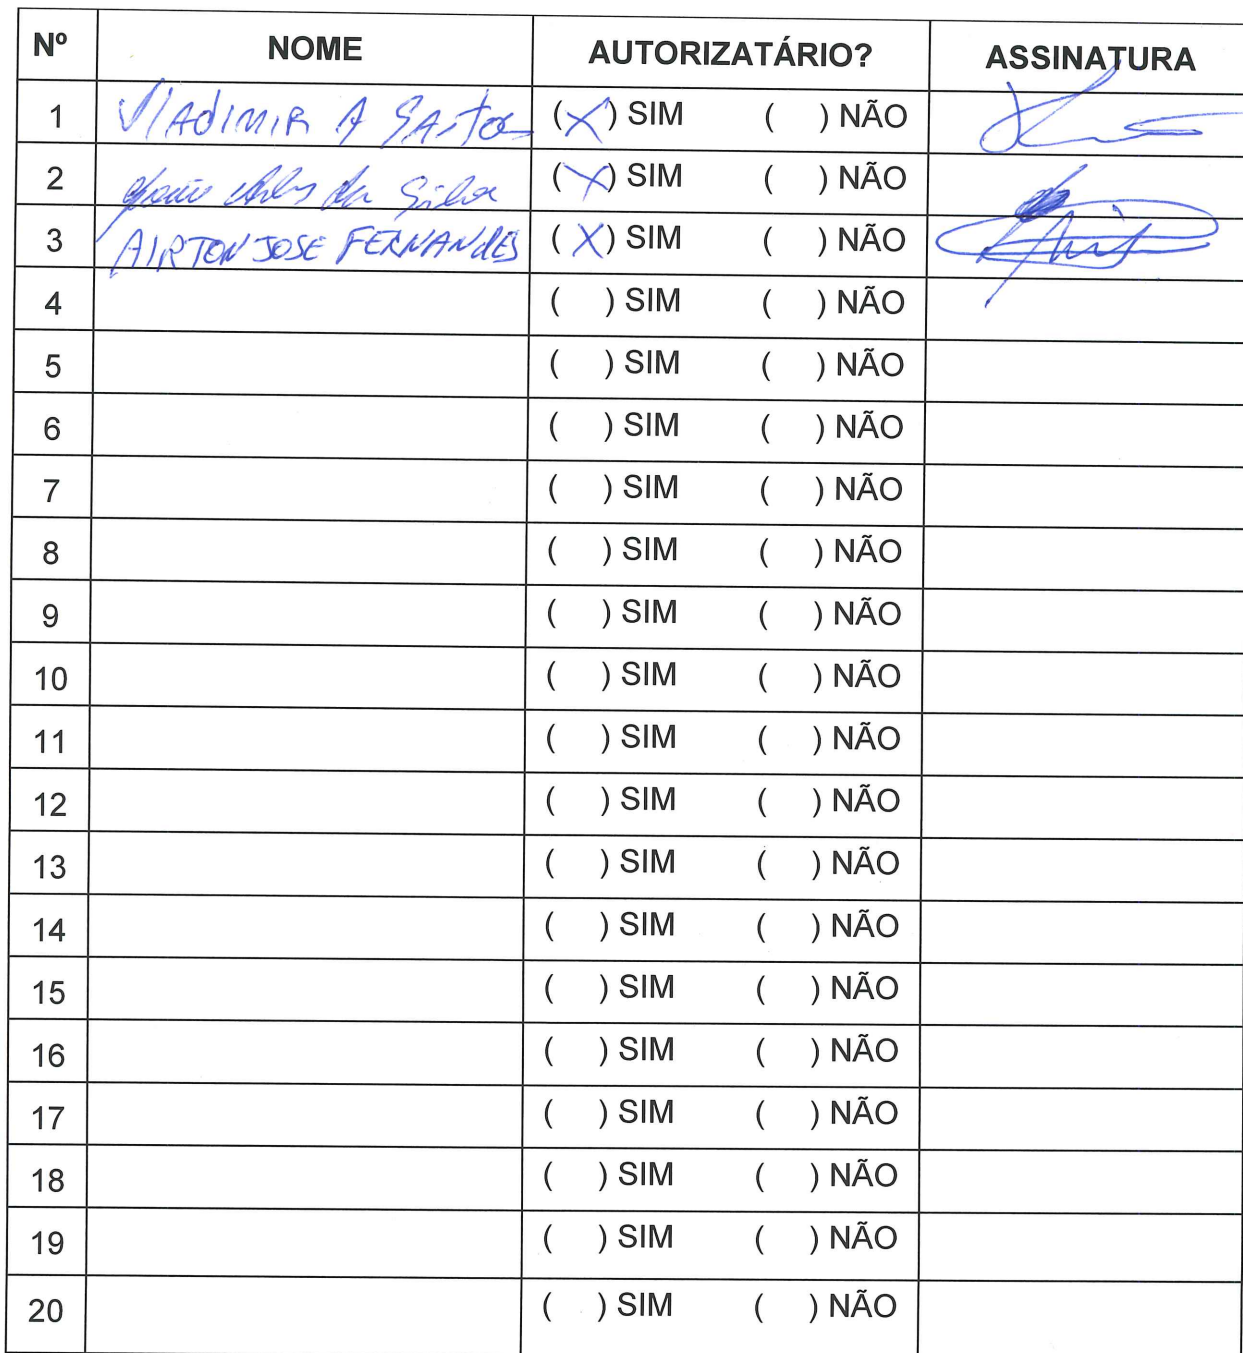 Nº NOME AUTORIZATÁRIO? ASSINATURA
1 VlAdimiR A SAntos (X) SIM ( ) NÃO
2 da Silva (X) SIM ( ) NÃO
3 AIRTON JOSE FERNANDES (X) SIM ( ) NÃO
4 ( ) SIM ( ) NÃO
5 ( ) SIM ( ) NÃO
6 ( ) SIM ( ) NÃO
7 ( ) SIM ( ) NÃO
8 ( ) SIM ( ) NÃO
9 ( ) SIM ( ) NÃO
10 ( ) SIM ( ) NÃO
11 ( ) SIM ( ) NÃO
12 ( ) SIM ( ) NÃO
13 ( ) SIM ( ) NÃO
14 ( ) SIM ( ) NÃO
15 ( ) SIM ( ) NÃO
16 ( ) SIM ( ) NÃO
17 ( ) SIM ( ) NÃO
18 ( ) SIM ( ) NÃO
19 ( ) SIM ( ) NÃO
20 ( ) SIM ( ) NÃO